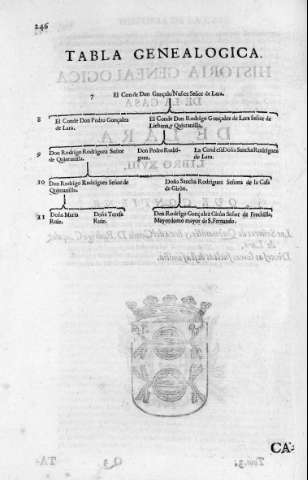 246
TABLA GENEALOGICA.
7 El Conde Don Gonçalo Nuñez Señor de Lara.
8 El Conde Don Pedro Gonçalez de Lara. El Conde Don Rodrigo Gonçalez de Lara Señor de Liebana y Quintanilla.
9 Don Rodrigo Rodriguez Señor de Quintanilla. Don Pedro Rodriguez. La Condesa Doña Sancha Rodriguez de Lara.
10 Don Rodrigo Rodriguez Señor de Quintanilla. Doña Sancha Rodriguez Señora de la Casa de Girón.
11 Doña Maria Ruiz. Doña Teresa Ruiz. Don Rodrigo Gonçalez Girón Señor de Frechilla, Mayordomo mayor de S. Fernando.
CA-